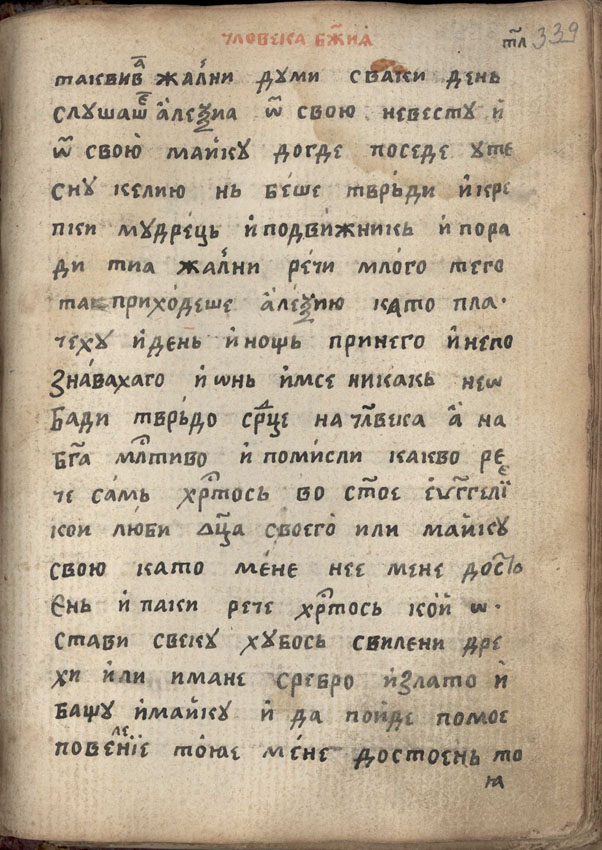 чловека бж҃иꙗ
тл҃ 339
таквив ꙗ жални думи сваки день
слушаше алеѯиа ѿ свою невесту и
ѿ свою майку догде поседе уте
сну келию нь беше тврьди и кре
пки мудрець и подвижникь и пора
ди тиа жални речи млого тего
та приходеше алеѯию като пла
чеху и день и нощь при него и непо
знавахаго и ѡнь имсе никакь неѡ
бади тврьдо срдце на чл҃века а на
бг҃а млтиво и помисли какво ре
че самь хрⷭтось во ст҃ое еѵⷢгелїе
кои люби ѿц҃а своего или майку
свою като мене нее мене дост
ень и паки рече хрⷭтось кой ѡ
стави свеку хубось свилени дре
хи или имане сребро и злато и
башу и майку и да пойде помое
повеленїе тоне мене достоень то
ꙗ